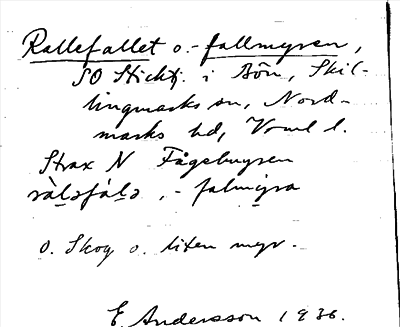 Rallefallet o. -fallmyren,
SO Sticktj. i Bön, Skil-
lingmarks sn, Nord-
marks hd, Vrml l.
Strax N Fågelmyren
ràl̥əfál̥ə, -falmy̠ra
o. Skog o. liten myr.
E. Andersson 1936.